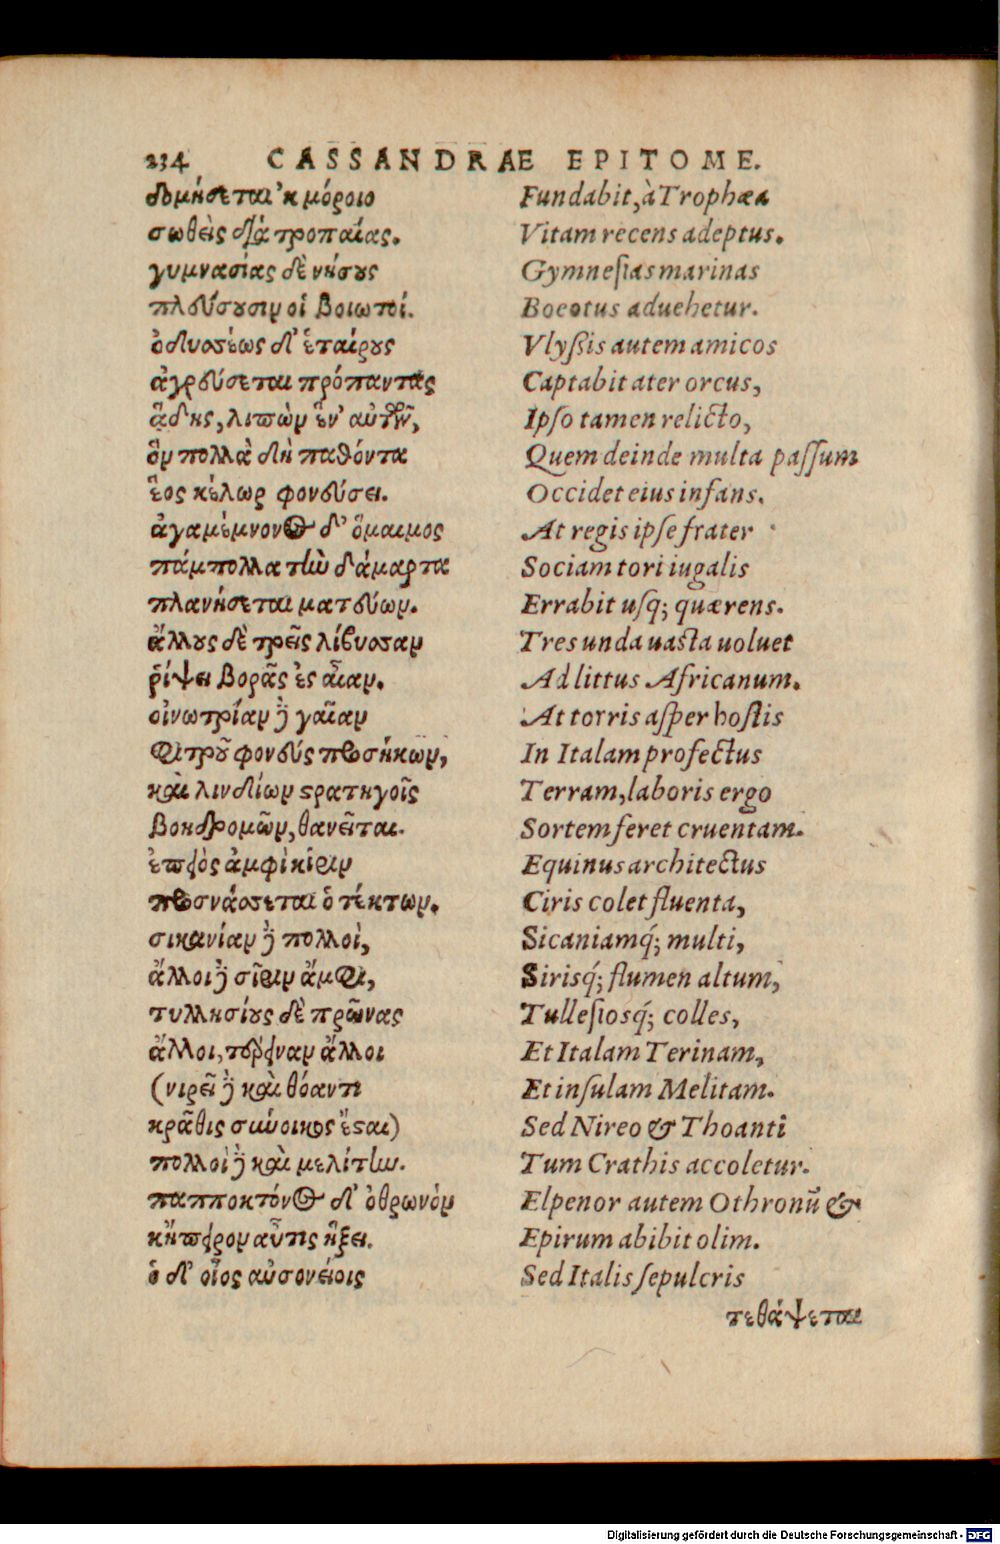 234 CASSANDRAE EPITOME.
δομήσεται 'κ μόροιο
σωθεὶς διὰ τροπαίας.
γυμνασίας δὲ νήσους
πλεύσουσιν οἱ βοιωτοί.
ὀδυσέως δ' ἑταίρους
ἀγρεύσεται πρόπαντας
ᾅδης, λιπὼν ἕν' αὐτὸν,
ὃν πολλὰ δὴ παθόντα
ἑὸς κέλωρ φονεύσει.
ἀγαμέμνονος δ' ὅμαιμος
πάμπολλα τὴν δάμαρτα
πλανήσεται ματεύων.
ἄλλους δὲ τρεῖς λίβυσσαν
ῥίψει βορᾶς ἐς αἶαν.
οἰνωτρίαν δὲ γαῖαν
φιτροῦ φονεὺς προσήκων,
καὶ λινδίων στρατηγοῖς
βοηδρομῶν, θανεῖται.
ἐπειὸς ἀμφὶ κίριν
προσνάσσεται ὁ τέκτων.
σικανίαν δὲ πολλοὶ,
ἄλλοι δὲ σῖριν ἀμφὶ,
τυλλησίους δὲ πρῶνας
ἄλλοι, τέρειναν ἄλλοι
(νιρεῖ δὲ καὶ θόαντι
κρᾶθις σύνοικος ἔσται)
πολλοὶ δὲ καὶ μελίτην.
παπποκτόνος δ' ὀθρωνὸν
κἤπειρον αὖτις ἥξει.
ὁ δ' οἷος αὐσονείοις
Fundabit, à Trophæa
Vitam recens adeptus.
Gymnesias marinas
Boeotus aduehetur.
Vlyßis autem amicos
Captabit ater orcus,
Ipso tamen relicto,
Quem deinde multa passum
Occidet eius infans.
At regis ipse frater
Sociam tori iugalis
Errabit usq; quærens.
Tres unda uasta uoluet
Ad littus Africanum.
At torris asper hostis
In Italam profectus
Terram, laboris ergo
Sortem feret cruentam.
Equinus architectus
Ciris colet fluenta,
Sicaniamq́; multi,
Sirisq́; flumen altum,
Tullesiosq́; colles,
Et Italam Terinam,
Et insulam Melitam.
Sed Nireo & Thoanti
Tum Crathis accoletur.
Elpenor autem Othronū &
Epirum abibit olim.
Sed Italis sepulcris
τεθάψεται
Digitalisierung gefördert durch die Deutsche Forschungsgemeinschaft - DFG